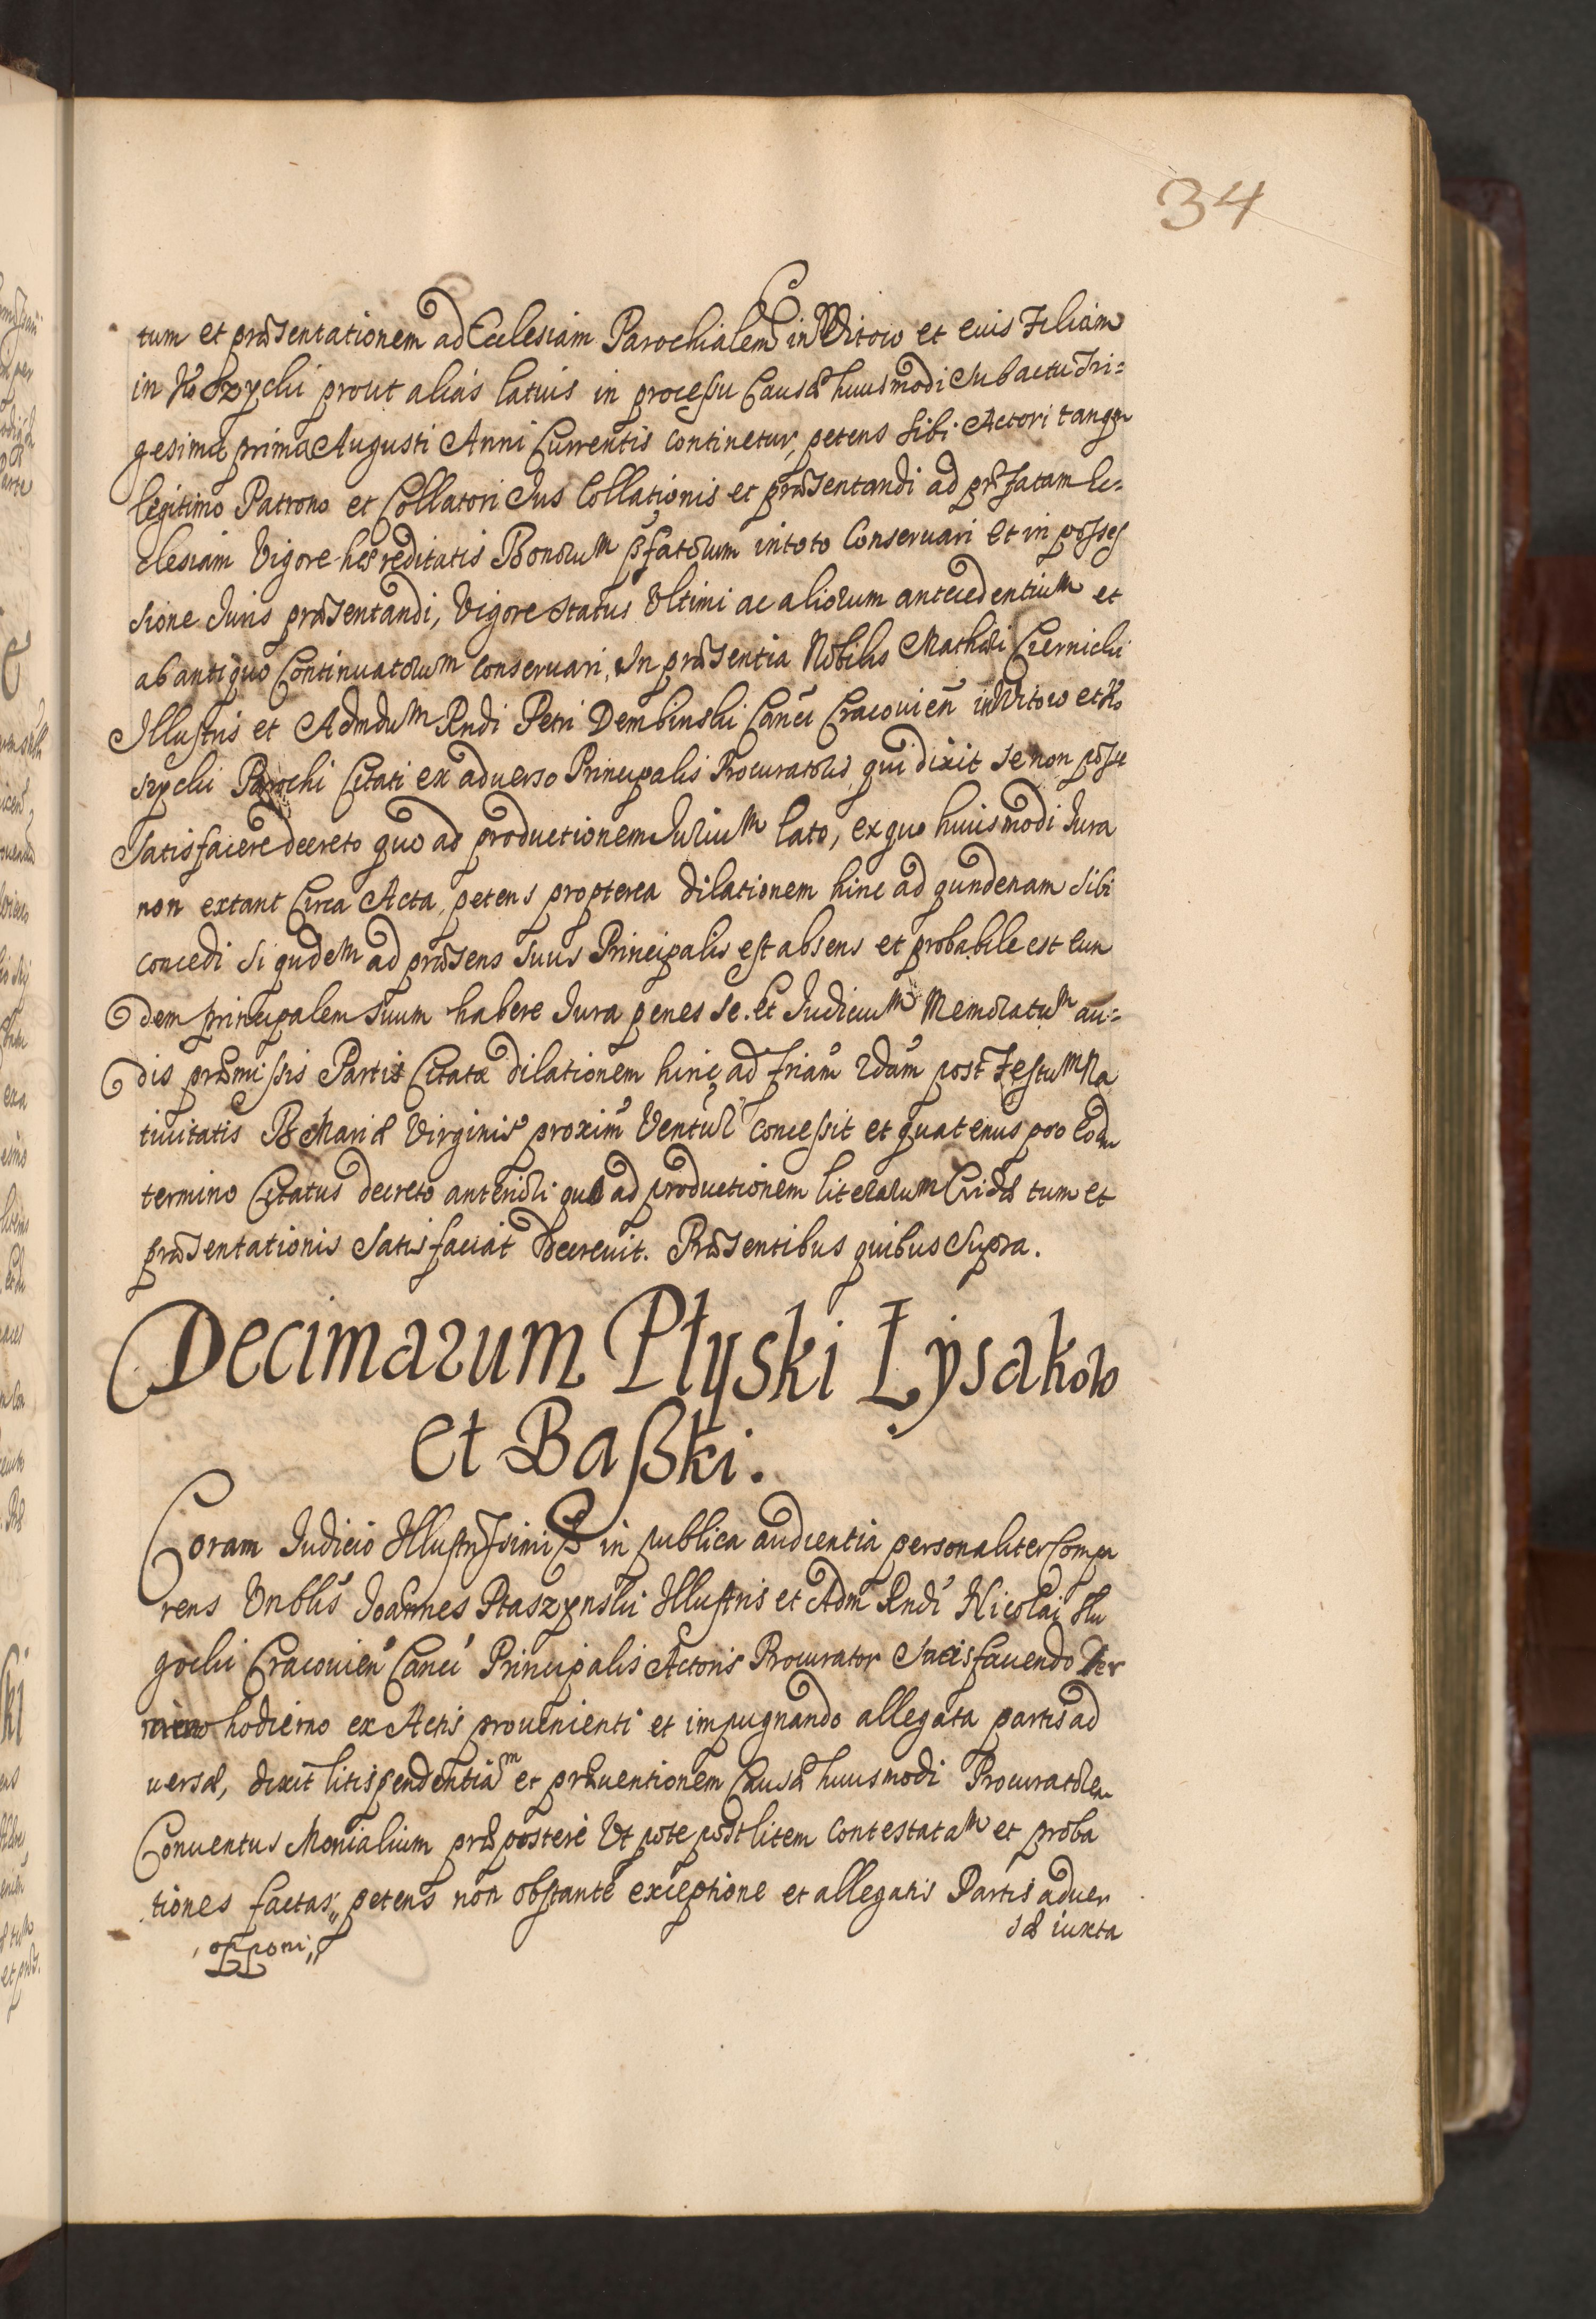 34
tum et præsentationem ad Ecclesiam Parochialem in Witow et euis Filiam
in Koszycki prout alias latius in processu Causæ huusmodi sub actu Tri=
gesima prima Augusti Anni Currentis continetur, petens sibi Actori tanqm
legitimo Patrono et Collatori Jus Collationis et præsentandi ad præfatam Ec=
clesiam Vigore hæreditatis Bonorum pfatorum in toto Conseruari et in posses
sione Juris præsentandi, Vigore status Ultimi ac aliorum antecedentium et
ab antiquo Continuatorum conseruari, In præsentia Nobilis Mathæi Czernicki
Illustris et Admdum Rndi Petri Dembinski Canci Cracouien in Witow et Ko
szycki Parochi Citati ex aduerso Principalis Procuratoris qui dixit se non posse
satisfacere decreto quo ad productionem Jurium lato, ex quo huiusmodi Jura
non extant Circa Acta, petens propterea dilationem hinc ad qundenam sibi
concedi si qudem ad præsens suus Principalis est absens et probabile est eun
dem principalem suum habere Jura penes se. Et Judicium Memoratum au=
dis præmissis Partis Citatæ dilationem hinc ad friam 2dam post Festum Na
tiuitatis B Mariæ Virginis proxim Ventur concessit et quatenus pro eodm
termino Citatus decreto anteriori quo ad productionem literarum Cridæ tum et
præsentationis satisfaciat decreuit. Præsentibus quibus supra.
Decimarum Płyski Łysakow
et Baßki.
Coram Judicio Illustrissimi &c in publica audientia personaliter Compa
rens Vnblis Joannes Ptaszynski Illustris et Adm Rndi Nicolai Słu
gocki Cracouien Canci Principalis Actoris Procurator satisfaciendo Ter
mino hodierno ex Actis prouenienti et impugnando allegata partis ad
uersæ, dixit litispendentiam et præuentionem Causæ huusmodi Procuratorem
Conuentus Monialium præpostere Ut pote post litem contestatam et proba
tiones factas,, petens non obstante exceptione et allegatis Partis aduer
opponi,,
sæ iuxta